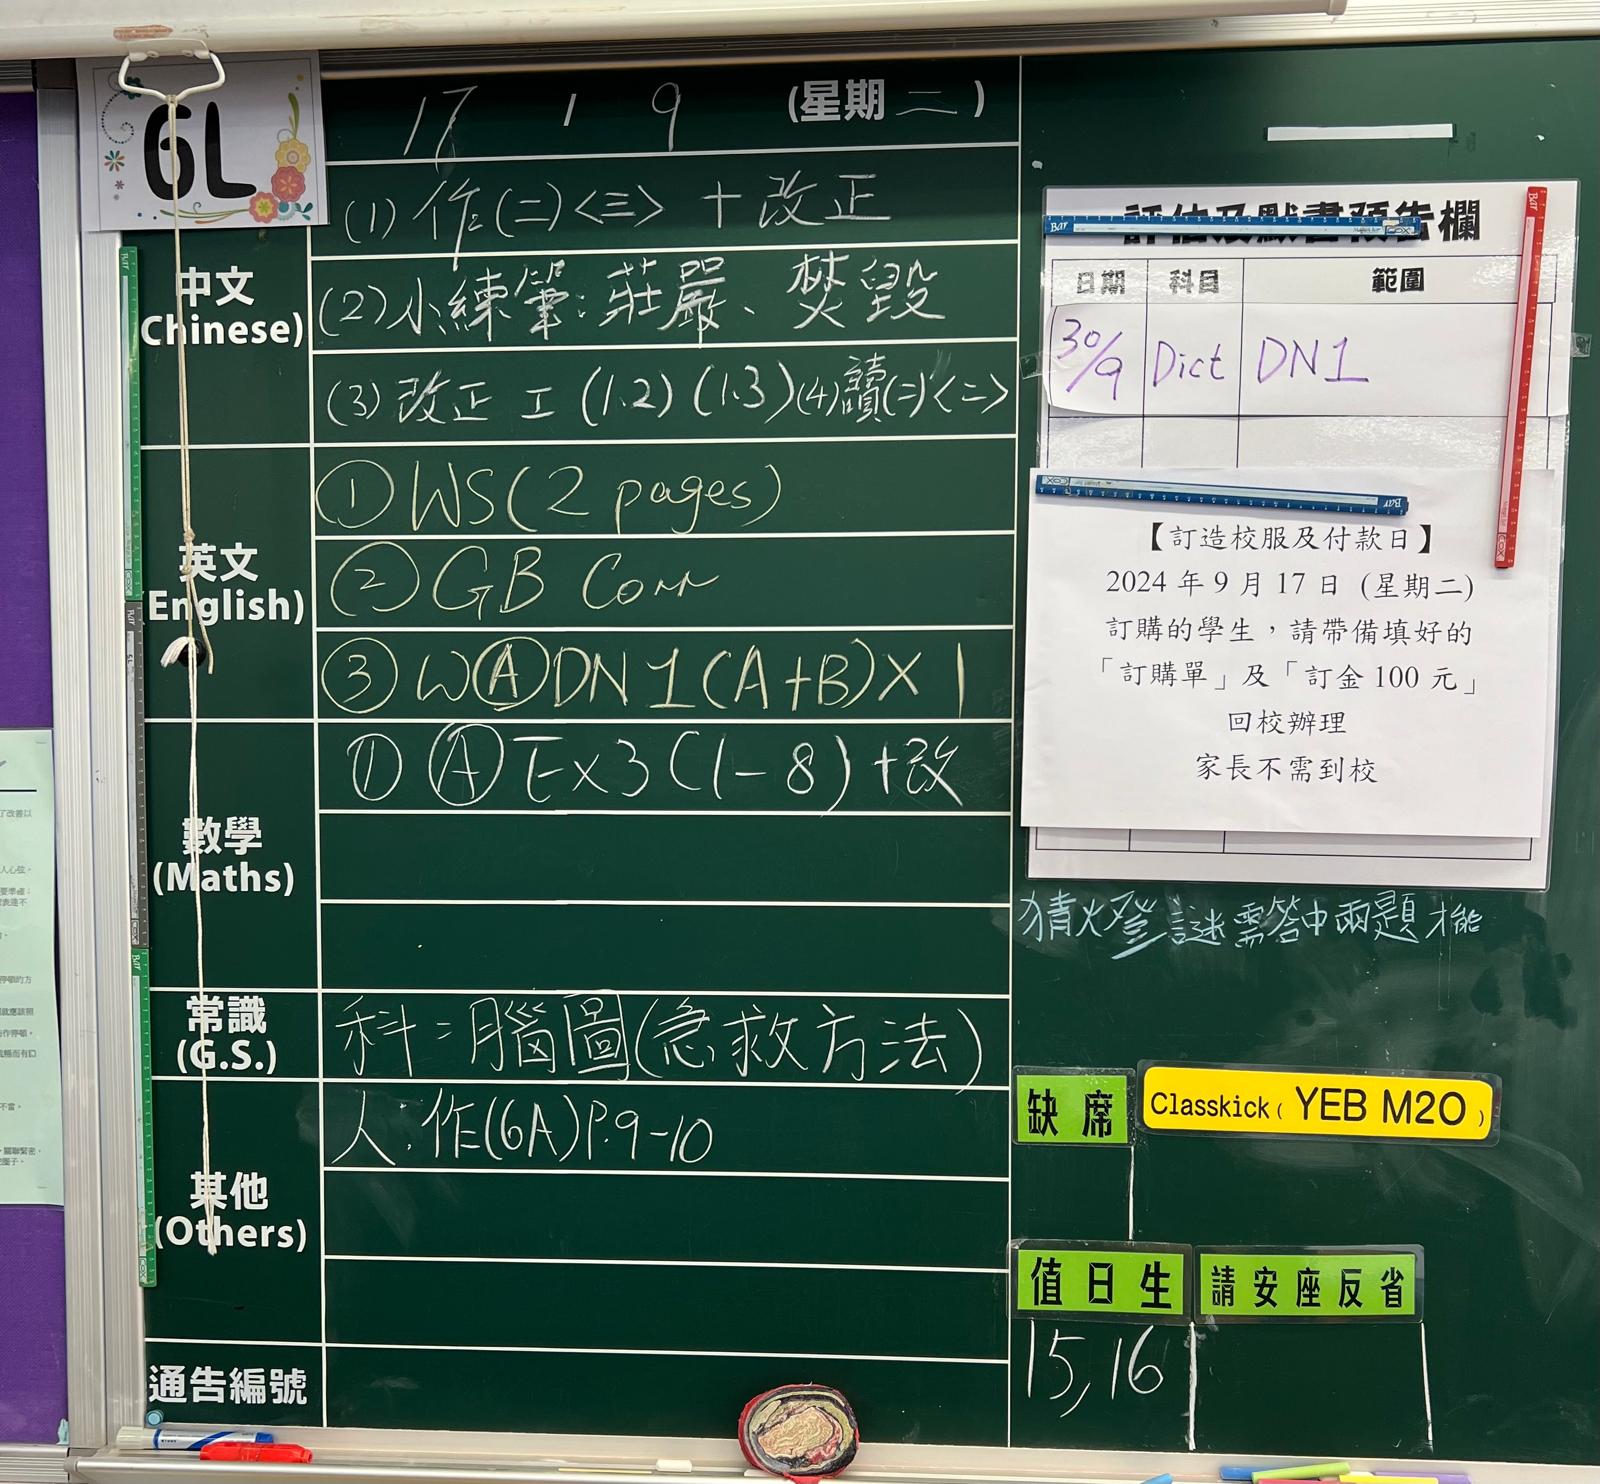 6L
17 / 9 (星期二)
中文
(Chinese)
(1) 作(二)<三> + 改正
(2) 小練筆:莊嚴、焚毀
(3) 改正 工 (1.2) (1.3) (4) 讀(二)<二>
英文
(English)
① WS (2 pages)
② GB Corr
③ W Ⓐ DN 1 (A+B) X 1
數學
(Maths)
① Ⓐ Ex 3 (1-8) + 改
常識
(G.S.)
科:腦圖(急救方法)
其他
(Others)
人:作(6A)P.9-10
通告編號
評估及默書預告欄
日期 科目 範圍
30/9 Dict DN1
【訂造校服及付款日】
2024 年 9 月 17 日 (星期二)
訂購的學生,請帶備填好的
「訂購單」及「訂金 100 元」
回校辦理
家長不需到校
猜火登謎需答中兩題才能
缺席 Classkick ( YEB M2O )
值日生 請安座反省
15, 16